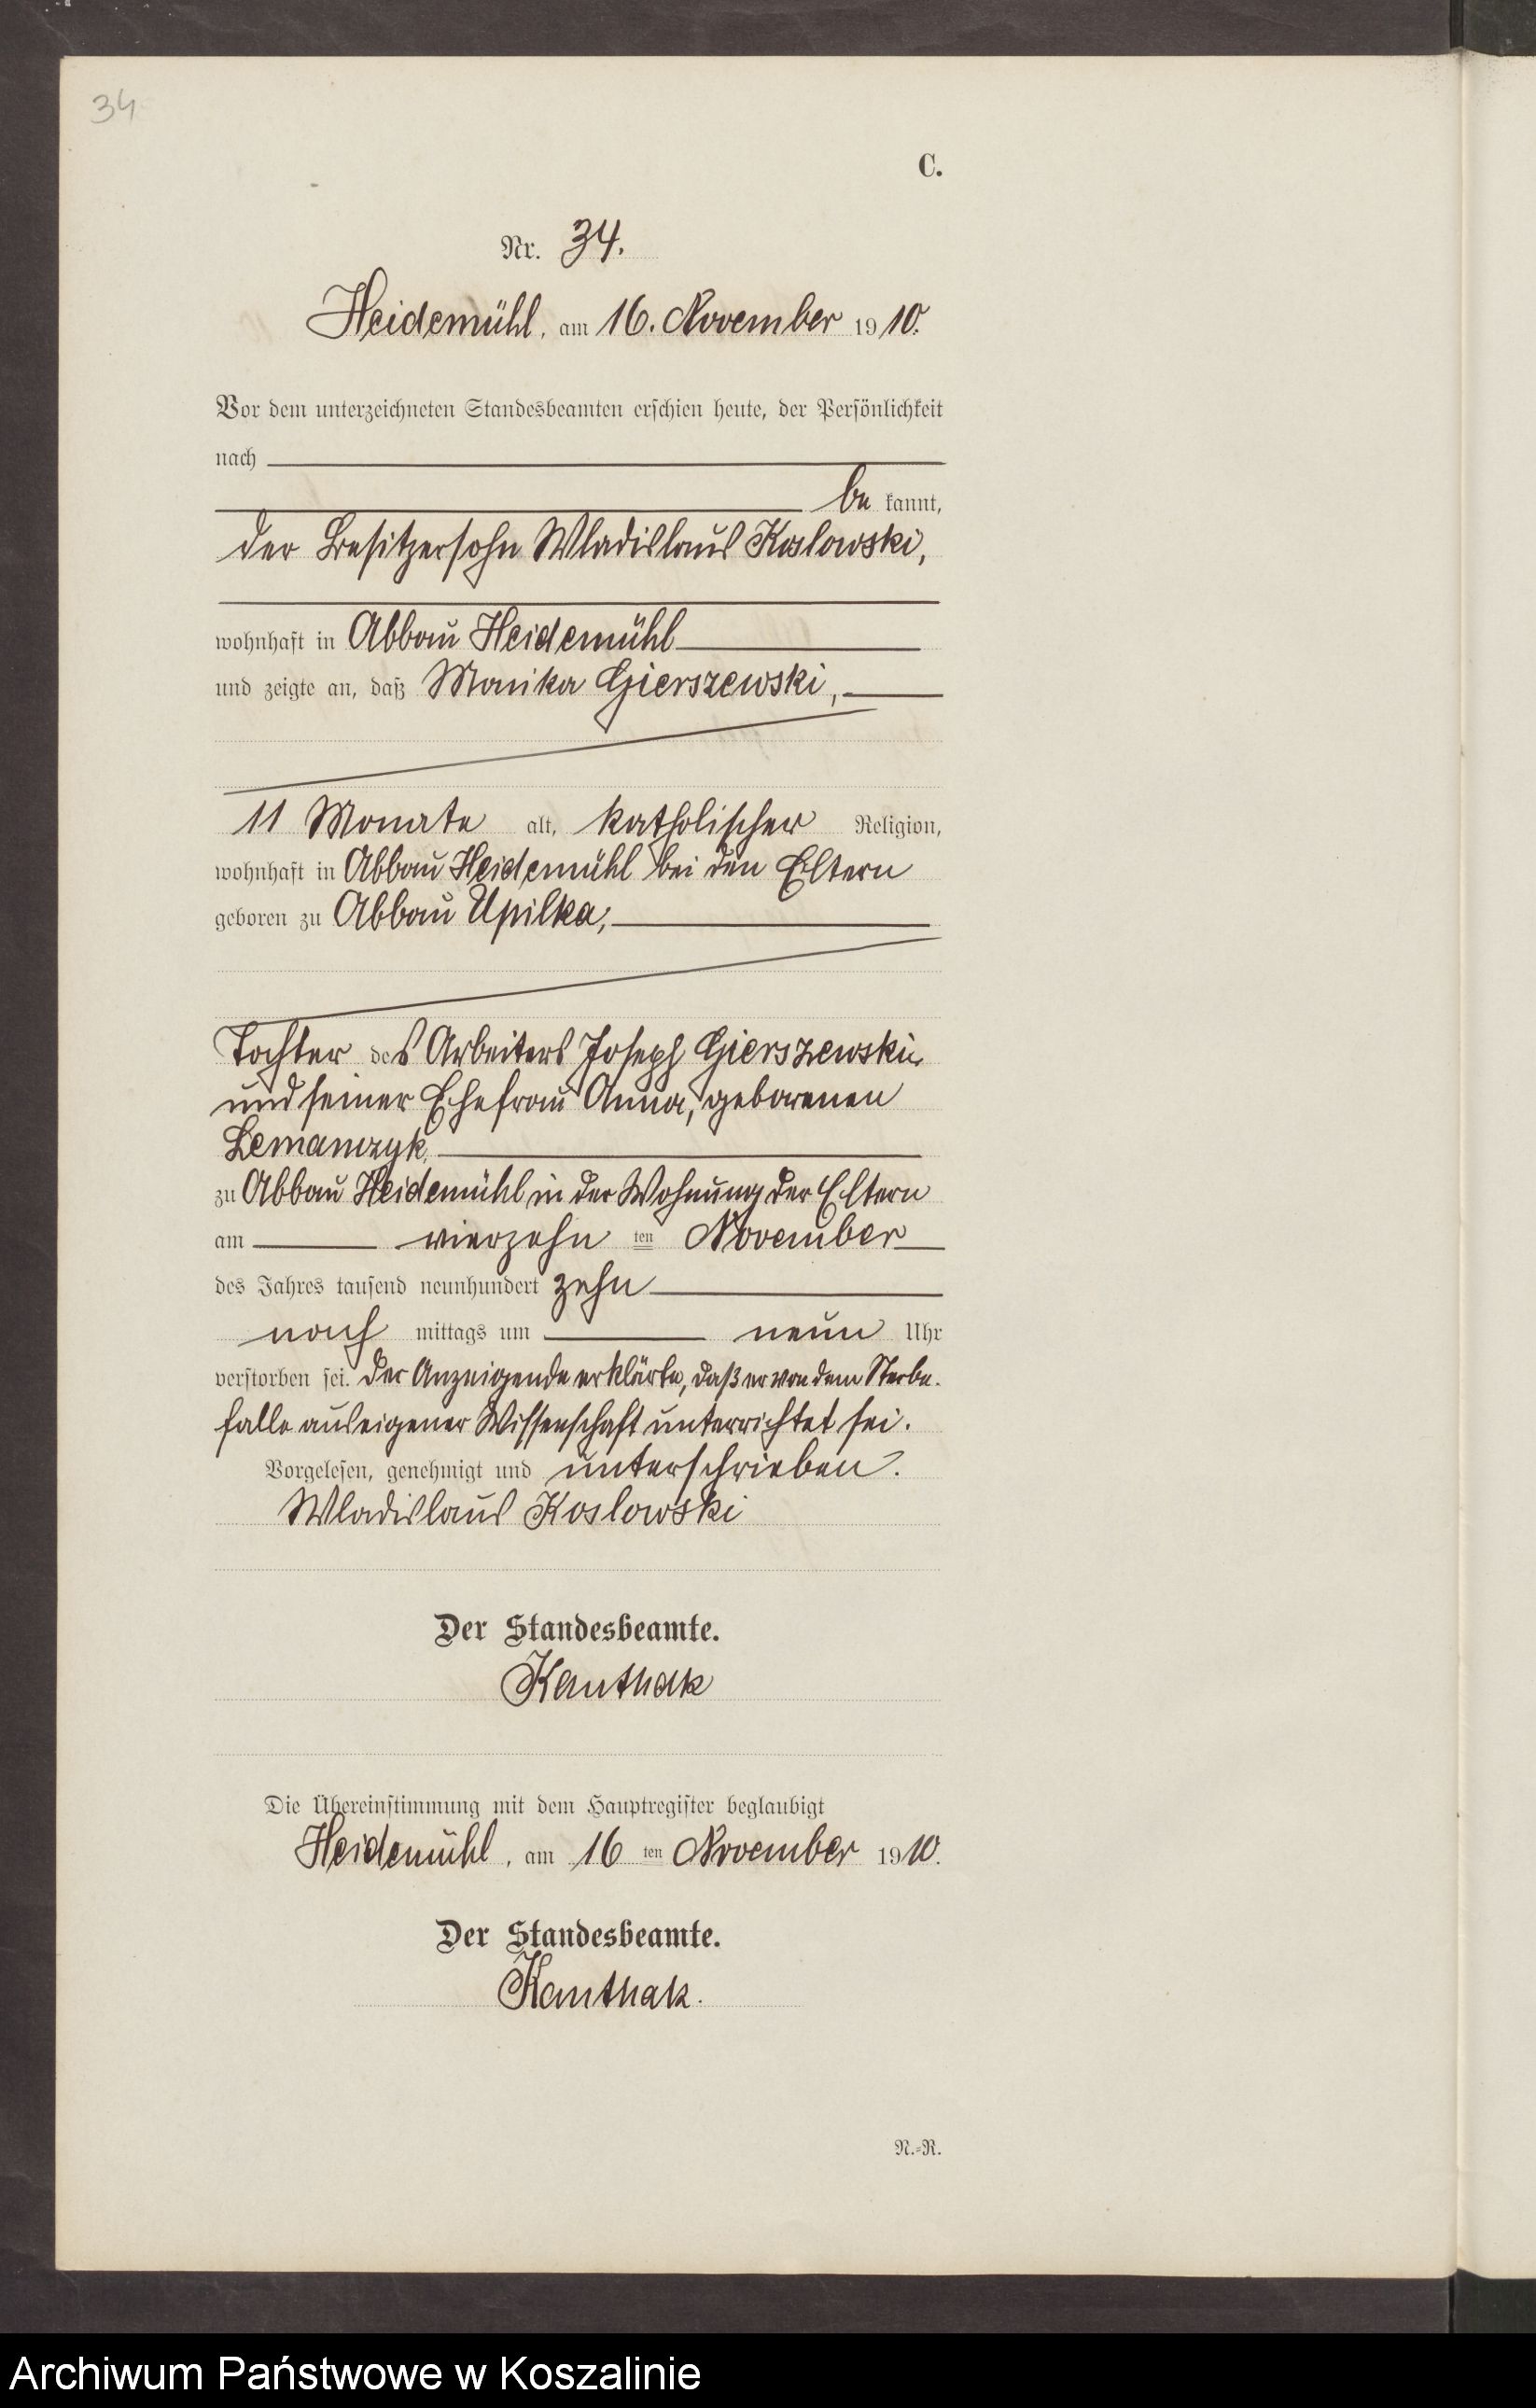 34
C.
Nr. 34.
Heidemühl, am 16. November 1910.
Vor dem unterzeichneten Standesbeamten erschien heute, der Persönlichkeit
nach
be kannt,
der Besitzersohn Wladislaus Koslowski,
wohnhaft in Abbau Heidemühl
und zeigte an, daß Monika Gierszewski,
11 Monate alt, katholischer Religion,
wohnhaft in Abbau Heidemühl bei den Eltern
geboren zu Abbau Upilka,
Tochter des Arbeiters Joseph Gierszewski
und seiner Ehefrau Anna, geborenen
Lemanczyk,
zu Abbau Heidemühl in der Wohnung der Eltern
am vierzehn ten November
des Jahres tausend neunhundert zehn
nach mittags um neun Uhr
verstorben sei. Der Anzeigende erklärte, daß er von dem Sterbe-
falle aus eigener Wissenschaft unterrichtet sei.
Vorgelesen, genehmigt und unterschrieben.
Wladislaus Koslowski
Der Standesbeamte.
Kanthak
Die Übereinstimmung mit dem Hauptregister beglaubigt
Heidemühl, am 16 ten November 1910.
Der Standesbeamte.
Kanthak.
N.=R.
Archiwum Państwowe w Koszalinie